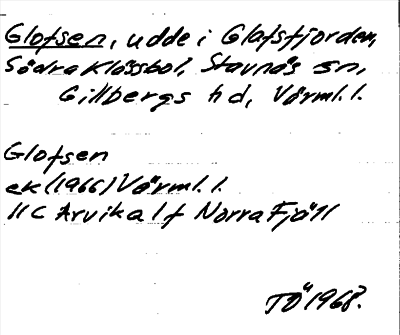 Glofsen, udde i Glafsfjorden,
Södra Klässbol, Stavnäs sn,
Gillbergs hd, Värml. l.
Glofsen
ek (1966) Värml. l.
11 C Arvika 1 f Norra Fjöll
TÖ 1968.